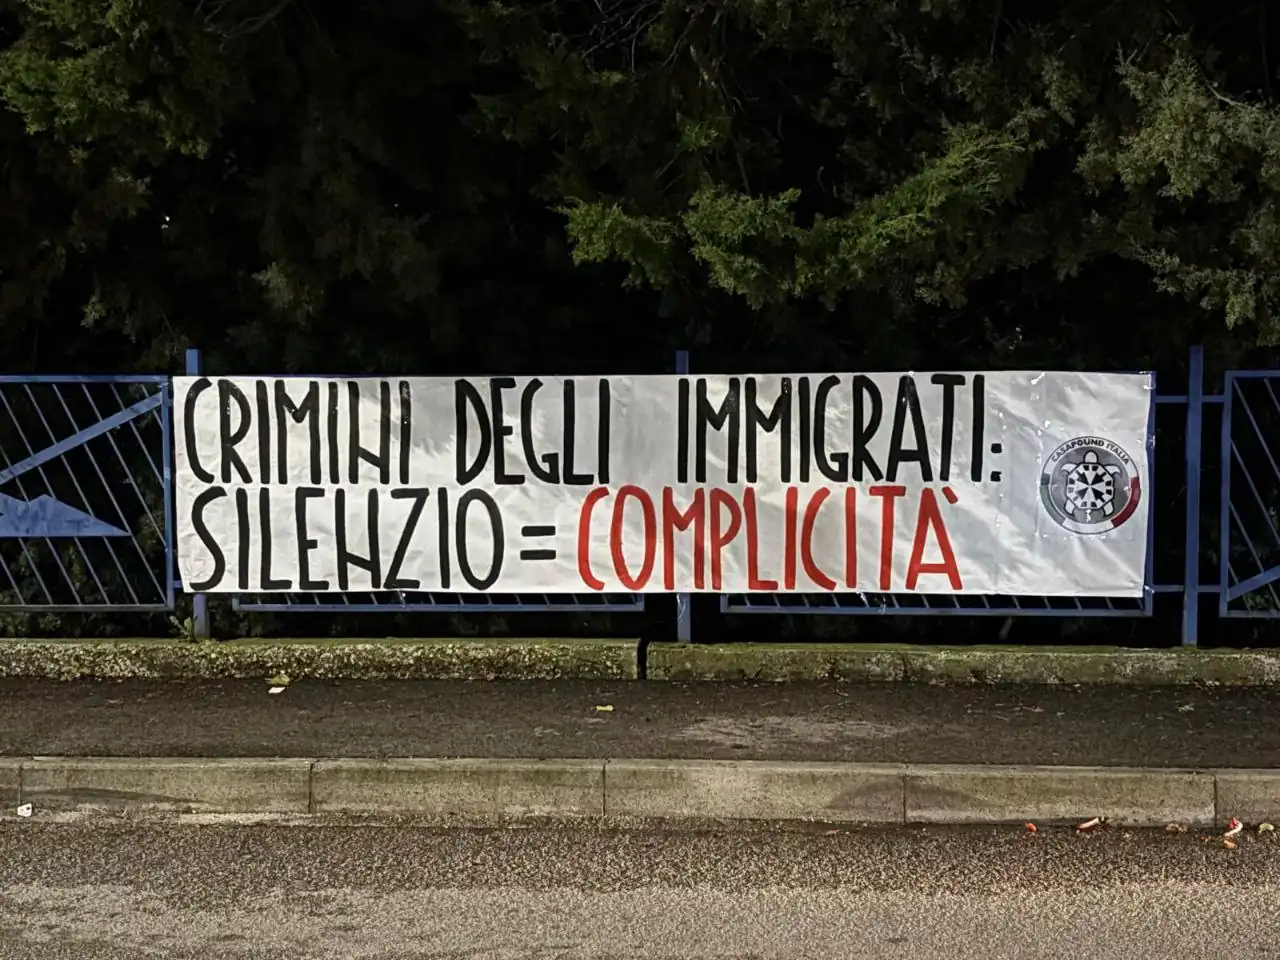 CRIMINI DEGLI IMMIGRATI:
SILENZIO = COMPLICITÀ
CASAPOUND ITALIA